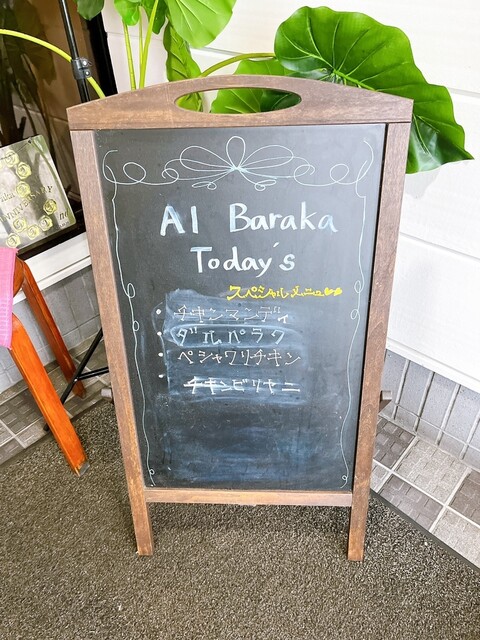 Al Baraka
Today's
スペシャルメニュー
・チキンマンディ
・ダルパラク
・ペシャワリチキン
・チキンビリヤニ